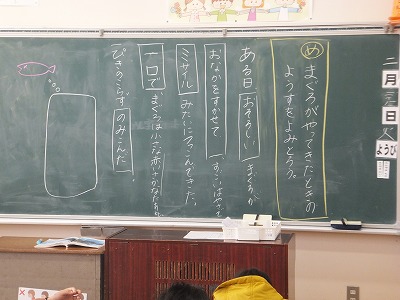 二月
日
ようび
め まぐろがやってきたときの
ようすをよみとろう。
ある日、おそろしいまぐろが、
おなかをすかせて すごいはやさで
ミサイルみたいにつっこんできた。
一口で まぐろは小さな赤い魚たちを、
ぴきのこらずのみこんだ。